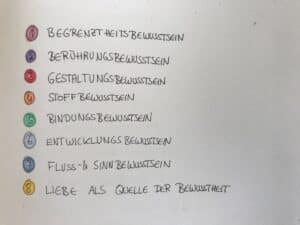 1 BEGRENZTHEITSBEWUSSTSEIN
2 BERÜHRUNGSBEWUSSTSEIN
3 GESTALTUNGSBEWUSSTSEIN
4 STOFFBEWUSSTSEIN
5 BINDUNGSBEWUSSTSEIN
6 ENTWICKLUNGSBEWUSSTSEIN
7 FLUSS-& SINNBEWUSSTSEIN
8 LIEBE ALS QUELLE DER BEWUSSTHEIT